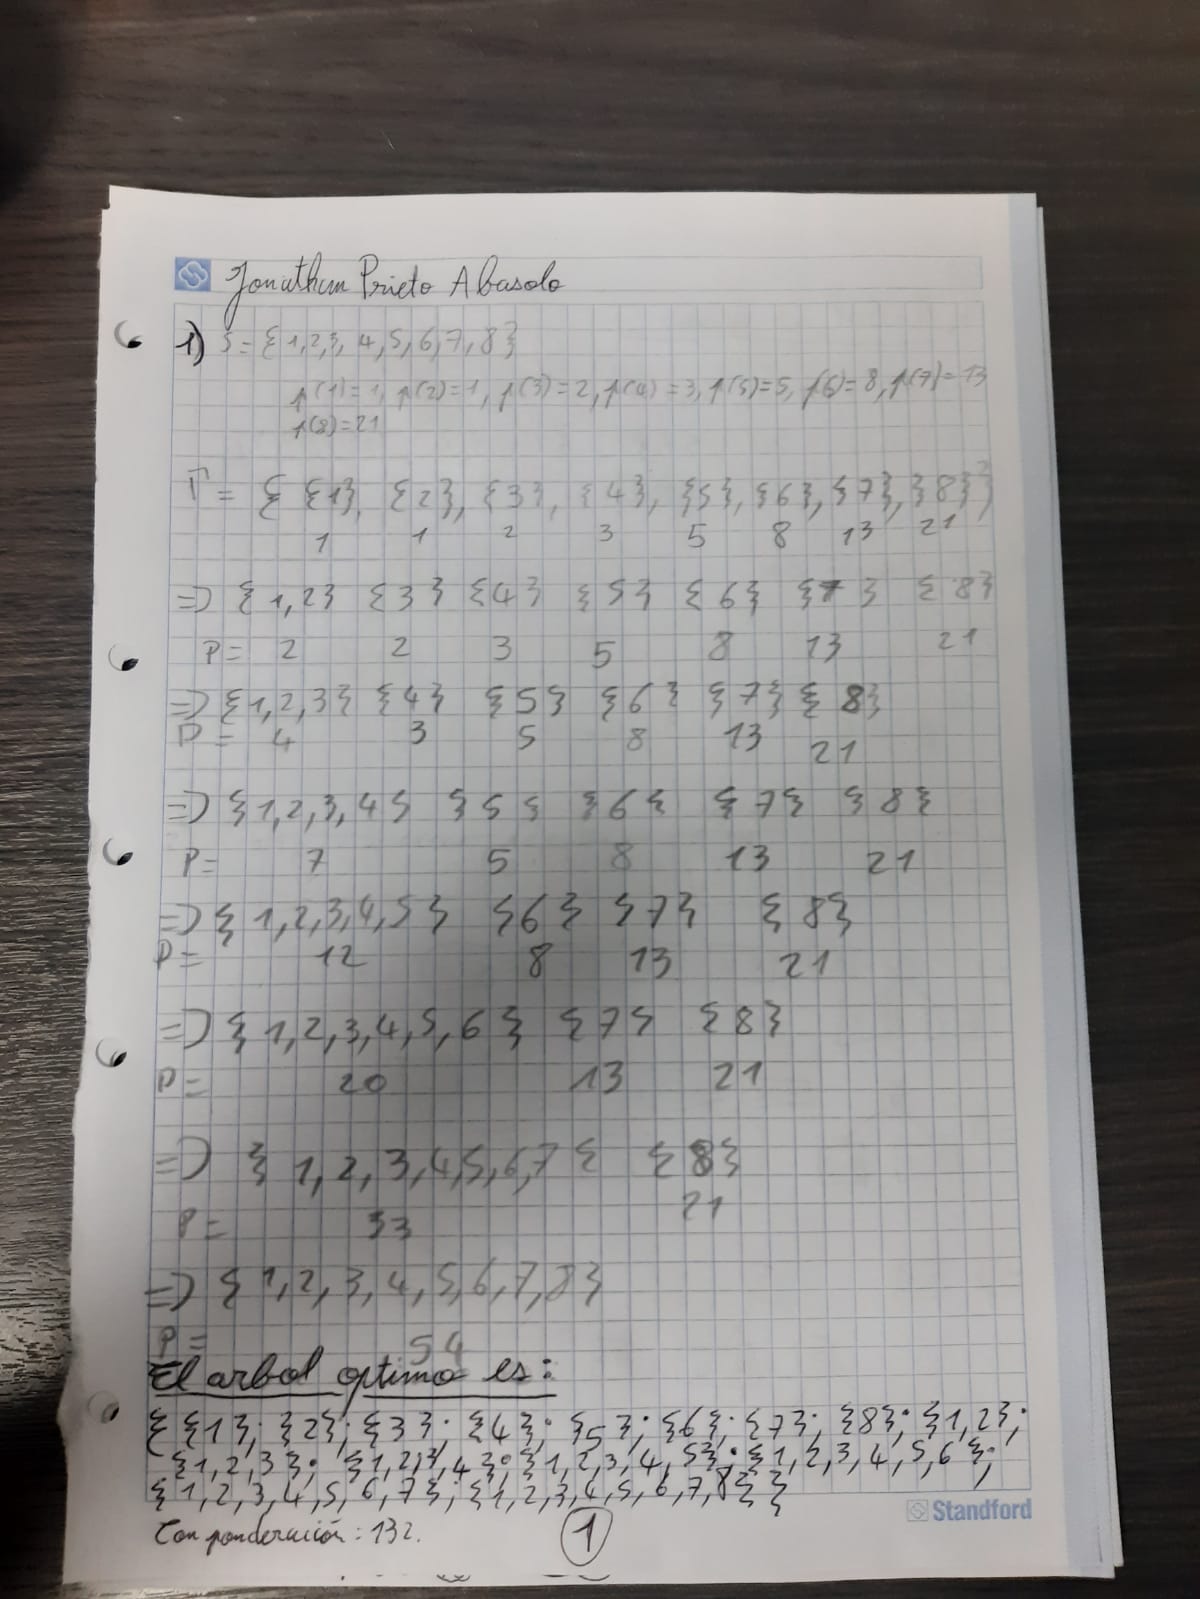 Jonathan Prieto Abasolo
1) S = { 1,2,3, 4,5,6,7,8 }
p(1)=1, p(2)=1, p(3)=2, p(4)=3, p(5)=5, p(6)=8, p(7)=13
p(8)=21
Γ = { {1}, {2}, {3}, {4}, {5}, {6}, {7}, {8} }
1 1 2 3 5 8 13 21
=> {1,2} {3} {4} {5} {6} {7} {8}
P= 2 2 3 5 8 13 21
=> {1,2,3} {4} {5} {6} {7} {8}
P= 4 3 5 8 13 21
=> {1,2,3,4} {5} {6} {7} {8}
P= 7 5 8 13 21
=> {1,2,3,4,5} {6} {7} {8}
P= 12 8 13 21
=> {1,2,3,4,5,6} {7} {8}
P= 20 13 21
=> {1,2,3,4,5,6,7} {8}
P= 33 21
=> {1,2,3,4,5,6,7,8}
P= 54
El arbol optimo es:
{ {1}; {2}; {3}; {4}; {5}; {6}; {7}; {8}; {1,2};
{1,2,3}; {1,2,3,4}; {1,2,3,4,5}; {1,2,3,4,5,6};
{1,2,3,4,5,6,7}; {1,2,3,4,5,6,7,8} }
Standford
Con ponderación: 132.
1